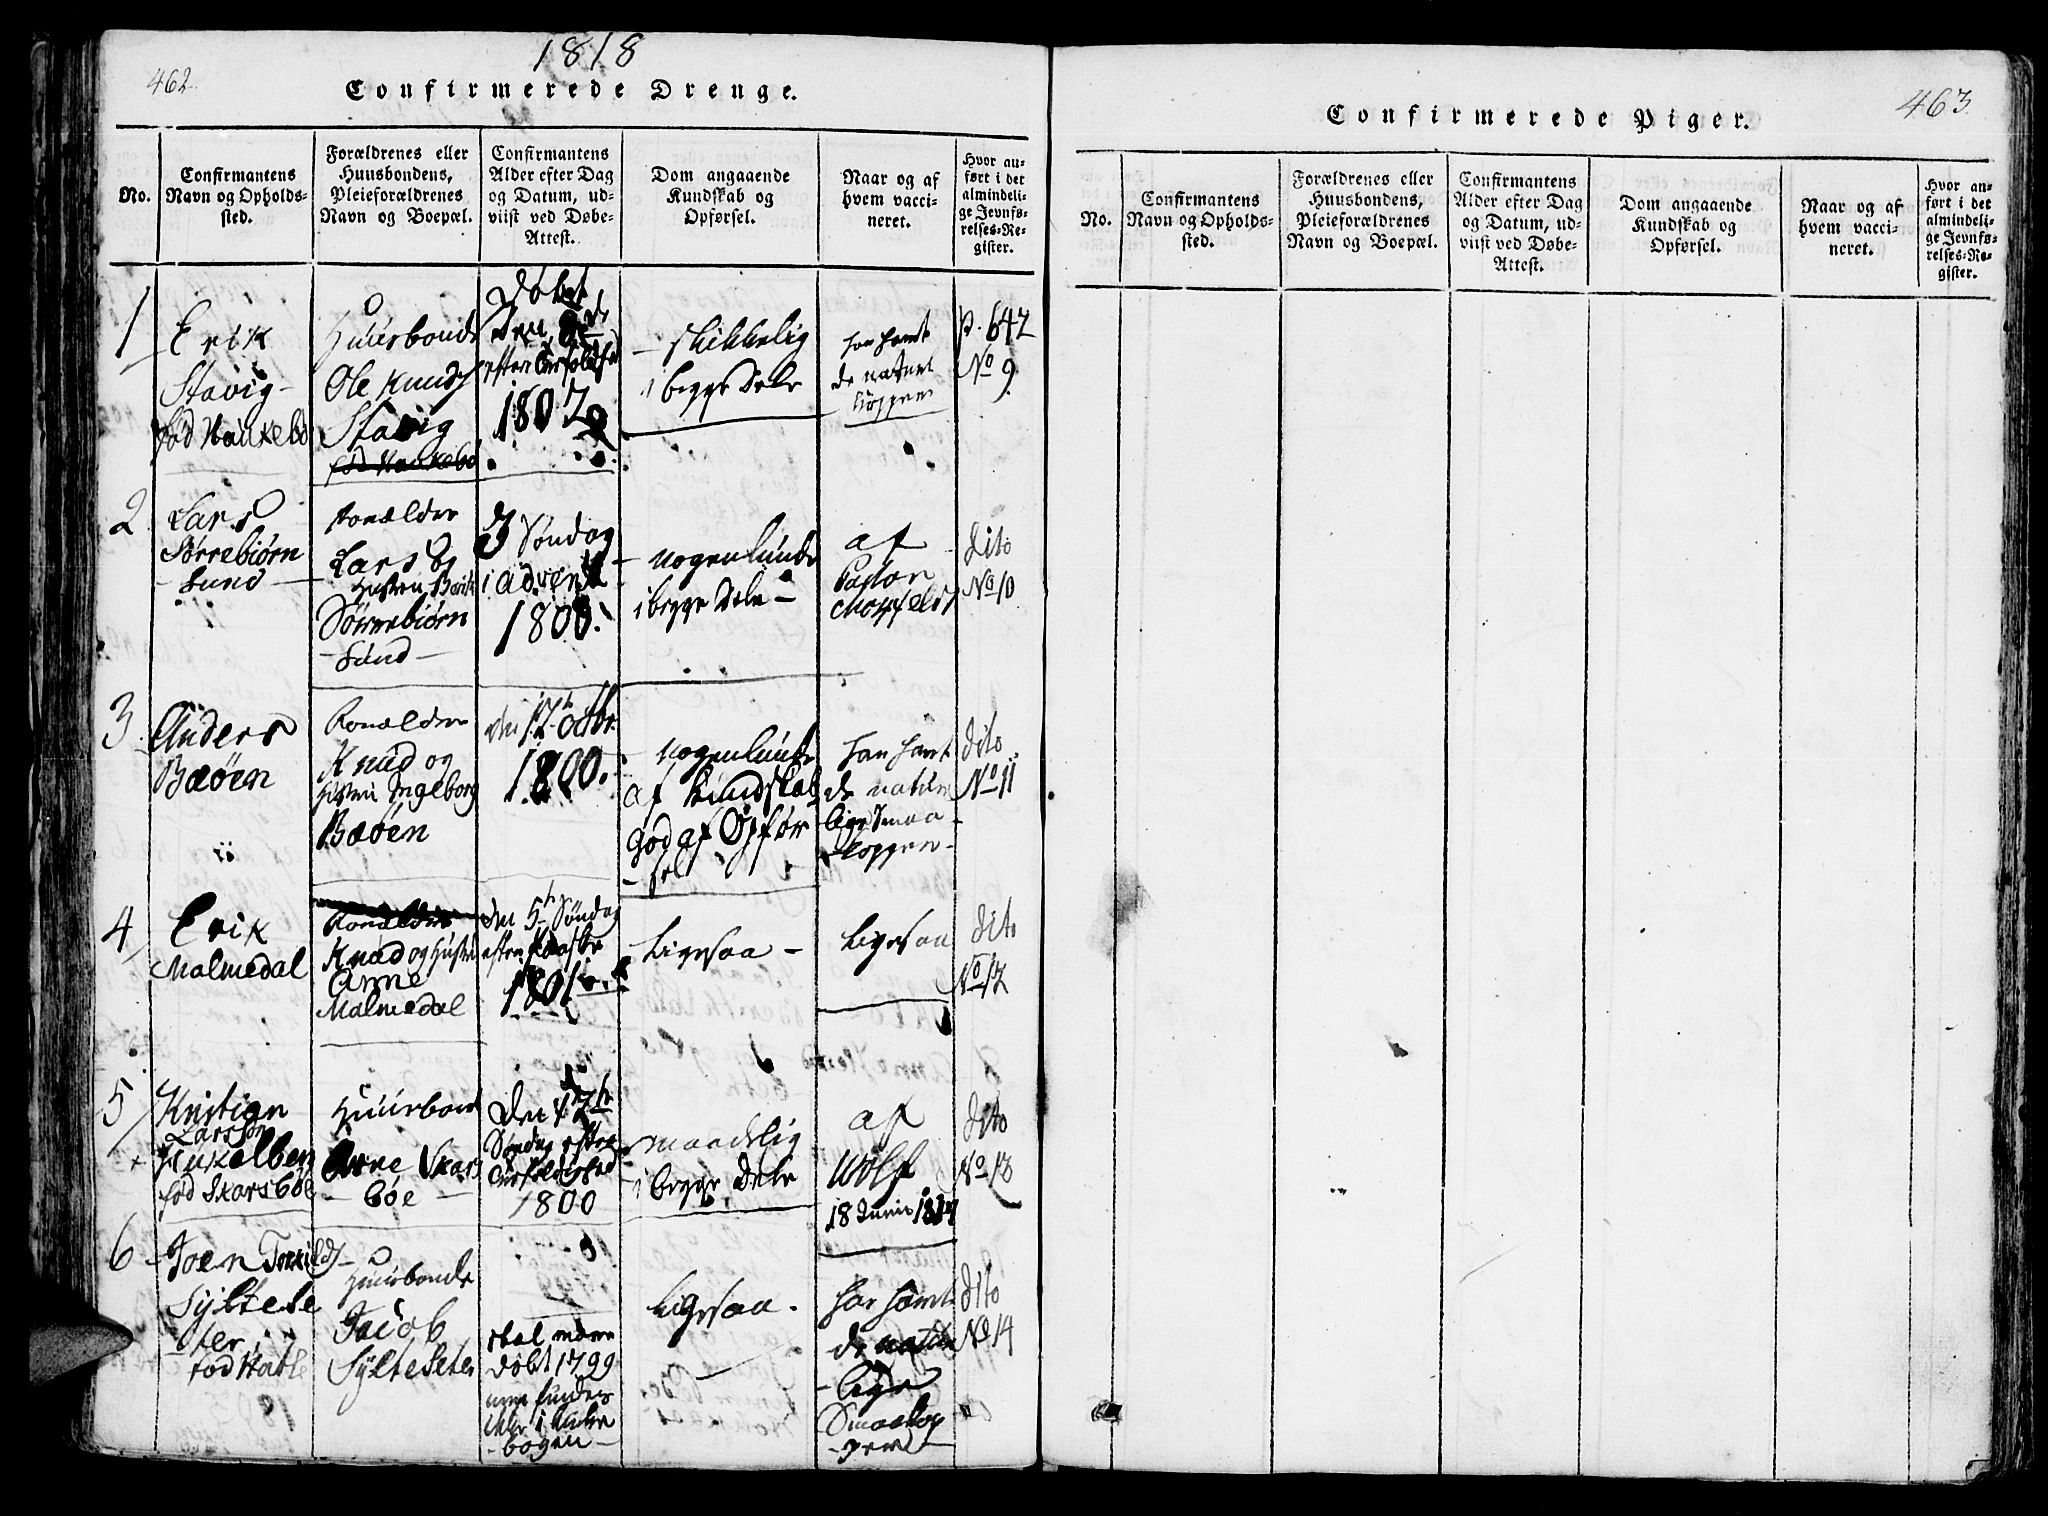 1818
462.
Confirmerede Drenge.
No.
Confirmantens
Navn og Opholds-
sted.
Forældrenes eller
Huusbondens,
Pleieforældrenes
Navn og Boepæl.
Confirmantens
Alder efter Dag
og Datum, ud-
viist ved Døbe-
Attest.
Dom angaaende
Kundskab og
Opførsel.
Naar og af
hvem vacci-
neret.
Hvor an-
ført i det
almindeli-
ge Jevnfø-
relses-Re-
gister.
1
Erik
Stavig
fød
Huusbonde
Ole Knuds
Stavig
Døbt
Den
1802
skikkelig
i begge Dele
har havt
de naturl
kopper
p. 642
No 9.
2
Lars
Sørrebiørn
Sund
Foræld​re
Lars og
Hustru Berit
Sørrebiørn
Sund
3 Søndag
i Advent
1800.
nogenlunde
i begge Dele
af
Pastor
dito
No 10
3
Anders
Bæøen
Forældre
Knud og
Hustru Ingeborg
Bæøen
den 12 Octbr.
1800.
nogenlunde
af Kundskab
god af Opfør
sel
har havt
de natur
lige Smaa
kopper
dito
No 11
4
Erik
Malmedal
Forældre
Knud og Hustru
Anne
Malmedal
den 5 Søndag
efter Paaske
1801
Ligesaa
Ligesaa
dito
No 12
5
Kristian
Larssøn
fød Skarsbøe
Huusbond
Arne Skars
bøe
Den
Søndag efter
1800
maadelig
i begge Dele
af
Wolf
18 Junii
dito
No 13
6
Joen
Sylte​se
ter
fød
Huusbonde
Jacob
Sylteseter
skal være
døbt 1799
men findes
ikke i Kirke
bogen
Ligesaa.
har havt
de natur
lige
Smaakop
per
dito
No 14
463.
Confirmerede Piger.
No.
Confirmantens
Navn og Opholds-
sted.
Forældrenes eller
Huusbondens,
Pleieforældrenes
Navn og Boepæl.
Confirmantens
Alder efter Dag
og Datum, ud-
viist ved Døbe-
Attest.
Dom angaaende
Kundskab og
Opførsel.
Naar og af
hvem vacci-
neret.
Hvor an-
ført i det
almindeli-
ge Jevnfø-
relses-Re-
gister.